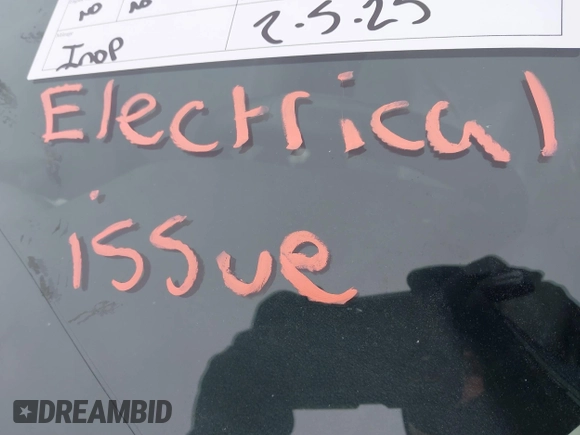 NO NO
Inop 2-5-25
Electrical
issue
DREAMBID